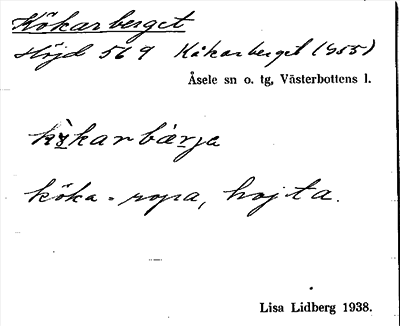 Kökarberget
Höjd 569 Kåkarberget (955)
Åsele sn o. tg, Västerbottens l.
kö̀karbärja
köka = ropa, hojta.
Lisa Lidberg 1938.